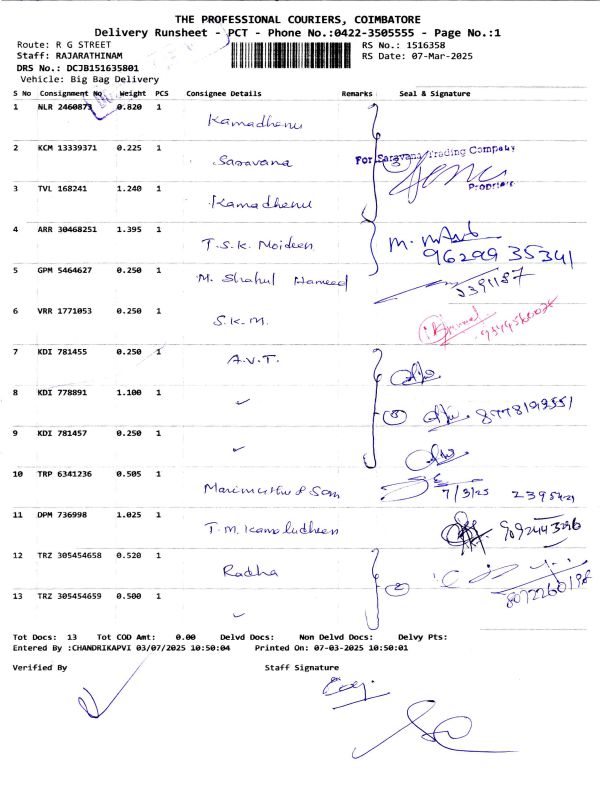 THE PROFESSIONAL COURIERS, COIMBATORE
Delivery Runsheet - PCT - Phone No.:0422-3505555 - Page No.:1
Route: R G STREET
RS No.: 1516358
Staff: RAJARATHINAM
RS Date: 07-Mar-2025
DRS No.: DCJB151635801
Vehicle: Big Bag Delivery
S No Consignment No Weight PCS Consignee Details Remarks Seal & Signature
1 NLR 2460873 0.820 1 Kamadhenu
2 KCM 13339371 0.225 1 Saravana
For Saravana Trading Company
Proprietor
3 TVL 168241 1.240 1 Kamadhenu
4 ARR 30468251 1.395 1 T.S.K. Moideen
96299 35341
5 GPM 5464627 0.250 1 M. Shahul Hameed
2391187
6 VRR 1771053 0.250 1 S.K.M.
7 KDI 781455 0.250 1 A.V.T.
8 KDI 778891 1.100 1 ✓ 3
9 KDI 781457 0.250 1 ✓
10 TRP 6341236 0.505 1 Marimuthu & Son 7/3/25
11 DPM 736998 1.025 1 T.M. Kamaludheen 9092443296
12 TRZ 305454658 0.520 1 Radha 2
8072260198
13 TRZ 305454659 0.500 1 ✓
Tot Docs: 13 Tot COD Amt: 0.00 Delvd Docs: Non Delvd Docs: Delvy Pts:
Entered By :CHANDRIKAPVI 03/07/2025 10:50:04 Printed On: 07-03-2025 10:50:01
Verified By Staff Signature